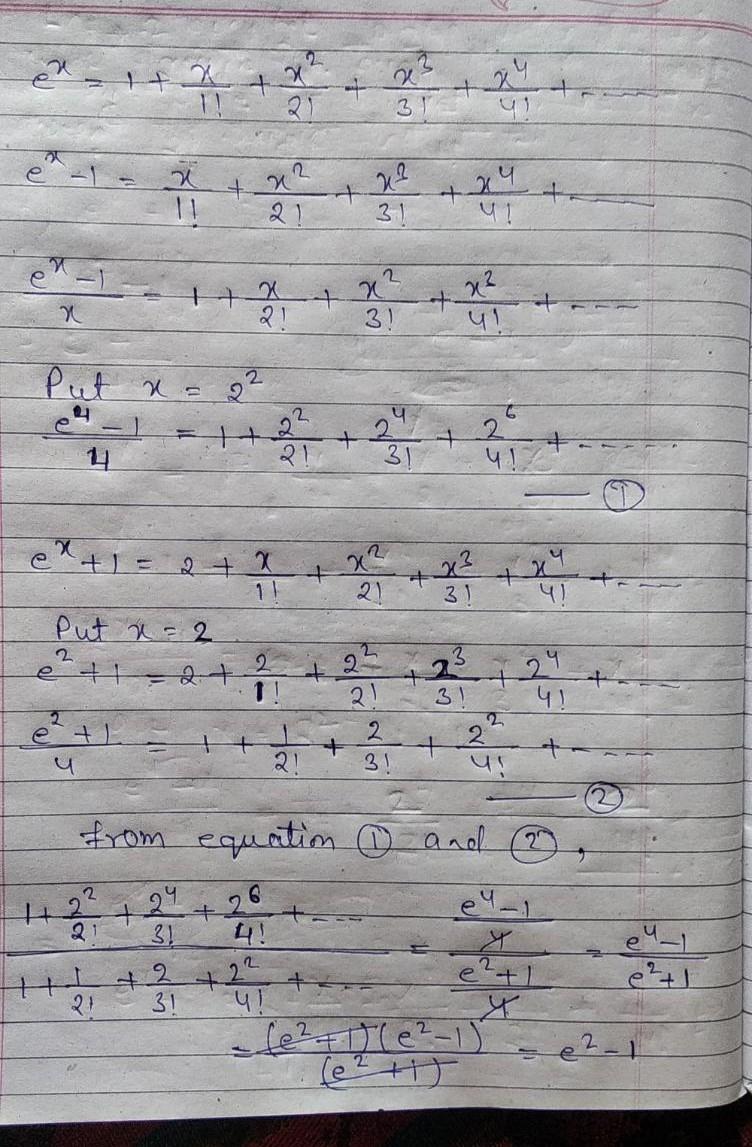 e^x = 1 + x/1! + x^2/2! + x^3/3! + x^4/4! + -----
e^x - 1 = x/1! + x^2/2! + x^3/3! + x^4/4! + -----
(e^x - 1)/x = 1 + x/2! + x^2/3! + x^3/4! + ----
Put x = 2^2
(e^4 - 1)/4 = 1 + 2^2/2! + 2^4/3! + 2^6/4! + ------
—— ①
e^x + 1 = 2 + x/1! + x^2/2! + x^3/3! + x^4/4! + -----
Put x = 2
e^2 + 1 = 2 + 2/1! + 2^2/2! + 2^3/3! + 2^4/4! + -----
(e^2 + 1)/4 = 1 + 1/2! + 2/3! + 2^2/4! + -----
—— ②
from equation ① and ②,
(1 + 2^2/2! + 2^4/3! + 2^6/4! + ----)/(1 + 1/2! + 2/3! + 2^2/4! + ----) = ((e^4 - 1)/4)/((e^2 + 1)/4) = (e^4 - 1)/(e^2 + 1)
= (e^2 + 1)(e^2 - 1)/(e^2 + 1) = e^2 - 1